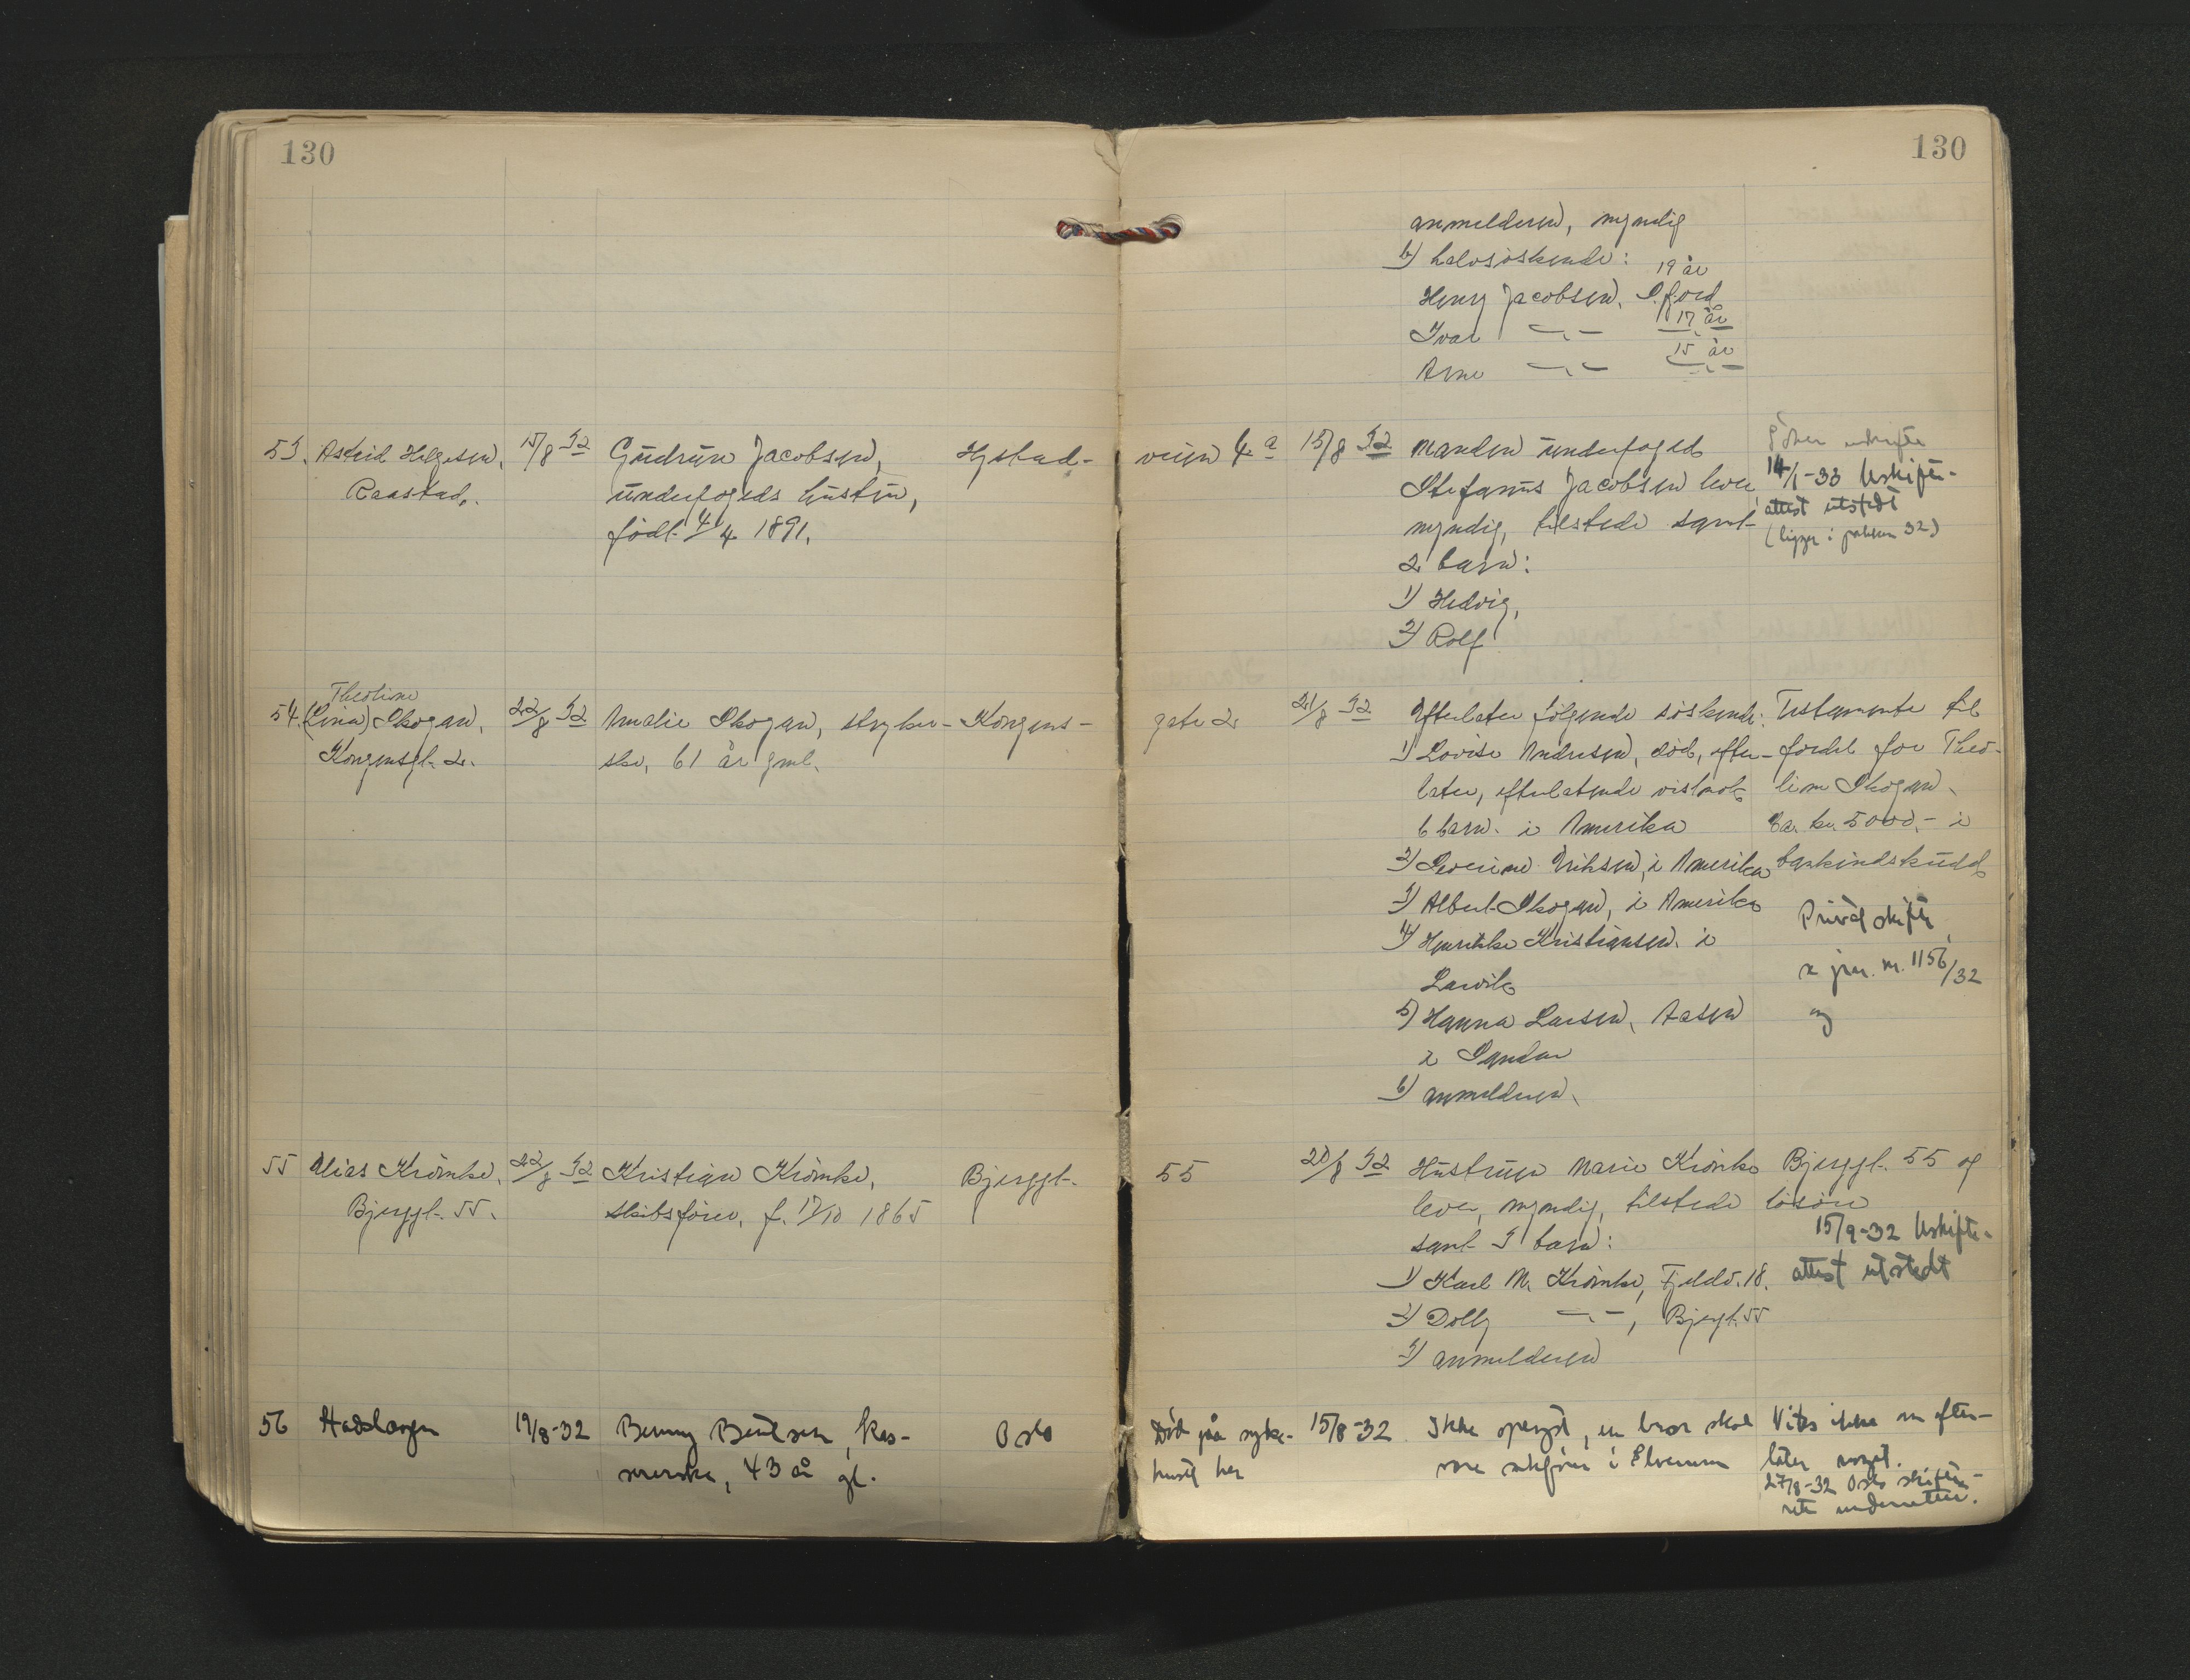 130
130
anmelderen, myndig
b) halvsøskende:
19 år
Henry Jacobsen, S.fjord
17 år
Ivar —„—
15 år
Arne —„— —„—
53. Astrid Helgesen, 15/8 32 Gudrun Jacobsen, Hystad- veien 4 a 15/8 32 Manden underfoged
Raastad. underfogeds hustru, Stefanus Jacobsen lever,
født 4/4 1891. myndig, tilstede samt
2 barn:
1) Hedvig,
2) Rolf
Sitter uskifte
14/1-33 Uskifte-
attest utstedt
(ligger i pakken 32)
Theoline
54. (Lina) Skogan, 22/8 32 Amalie Skogan, stryker- Kongens- gate 2 21/8 32 Efterlater følgende søskende: Testamente til
Kongensgt. 2. ske, 61 år gml. 1) Lovise Andresen, død, efter- fordel for Theo-
later, efterlatende vistnok line Skogan.
6 barn i Amerika Ca. kr. 5000.- i
2) Severine Eriksen, i Amerika bankindskudd
3) Albert Skogan, i Amerika
Privat skifte
4) Henrikke Kristiansen i
Larvik
x jnr. nr. 1156/32
5) Hanna Larsen, Aasen
i Sandar
6) anmelderen.
55 Alias Krømke, 22/8 32 Kristian Krømke, Bjerggt. 55 20/8 32 Hustruen Marie Krømke Bjerggt. 55 og
Bjerggt. 55. skibsfører, f. 17/10 1865 lever, myndig, tilstede løsøre
samt 3 barn:
15/9-32 Uskifte-
attest utstedt
1) Karl M. Krømke, Fjeldv. 18.
2) Dolly —„—, Bjergt. 55
3) anmelderen
56 Haslangen 19/8-32 Benny Bentsen, kas- Oslo Død på syke- 15/8-32 Ikke oplyst, en bror skal Vites ikke om efter-
sererske, 43 år gl. huset her være i Elverum later noget.
27/8-32 Oslo skifte-
rett underrettet.